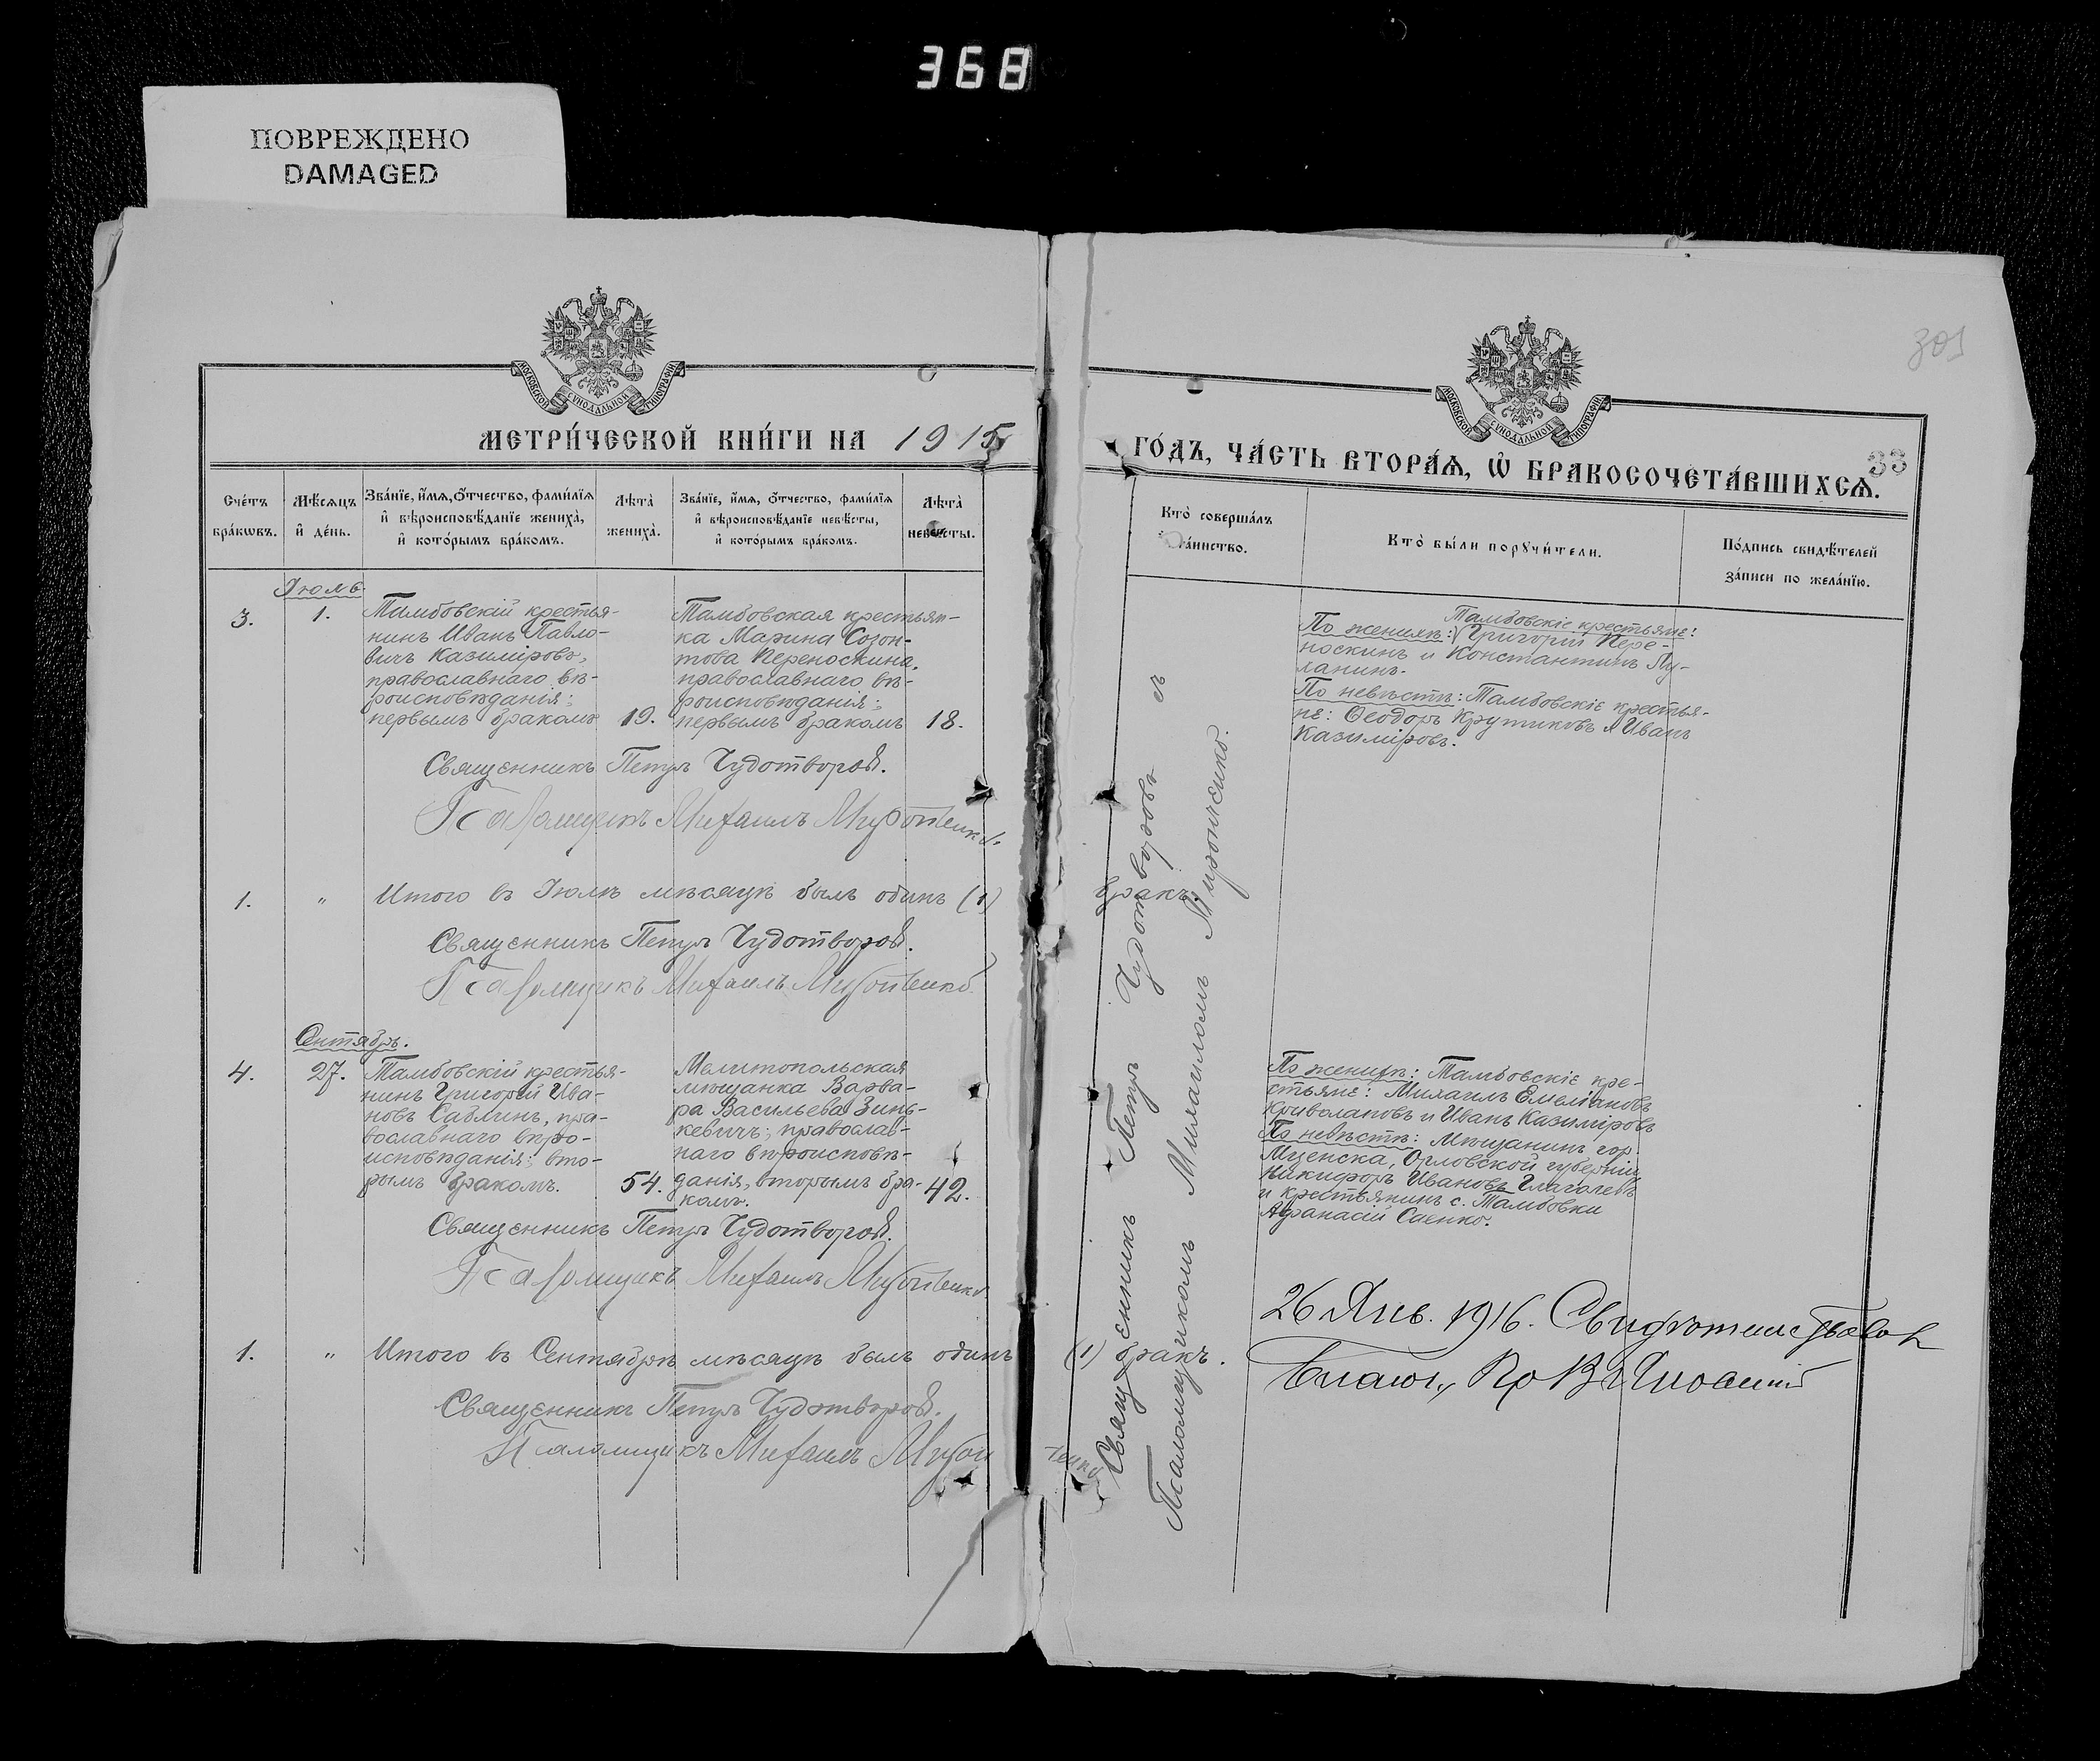 368
ПОВРЕЖДЕНО
DAMAGED
301
МОСКОВСКОЙ СѴНОДАЛЬНОЙ ТИПОГРАФІИ
МОСКОВСКОЙ СѴНОДАЛЬНОЙ ТИПОГРАФІИ
МЕТРИ́ЧЕСКОЙ КНИ́ГИ НА 1915
ГО́ДЪ, ЧА́СТЬ ВТОРА́Ѧ, Ѡ҆ БРАКОСОЧЕТА́ВШИХСѦ.
33
Сче́тъ бра́кѡвъ.
Мѣ́сѧцъ и҆ де́нь.
Зва́нїе, и҆́мѧ, ѻ҆́тчество, фами́лїѧ и҆ вѣроисповѣ́данїе жениха̀, и҆ кото́рымъ бра́комъ.
Лѣ́та̀ жениха̀.
Зва́нїе, и҆́мѧ, ѻ҆́тчество, фами́лїѧ и҆ вѣроисповѣ́данїе невѣ́сты, и҆ кото́рымъ бра́комъ.
Лѣ́та̀ невѣ́сты.
Кто̀ соверша́лъ таинство.
Кто̀ бы́ли порꙋчи́тели.
По́дпись свидѣ́телей за́писи по жела́нїю.
Іюль
3.
1.
Тамбовскій крестья-
нинъ Иванъ Павло-
вичъ Казиміровъ,
православнаго вѣ-
роисповѣданія;
первымъ бракомъ
19.
Тамбовская крестьян-
ка Марина Созон-
това Переноскина,
православнаго вѣ-
роисповѣданія;
первымъ бракомъ
18.
Тамбовскіе крестьяне:
По женихѣ: Григорій Пере-
носкинъ и Константинъ Лу-
ланинъ.
По невѣстѣ: Тамбовскіе крестья-
не: Ѳеодоръ Крутиковъ и Иванъ
Казиміровъ.
Священникъ Петръ Чудотворовъ.
Псаломщикъ Михаилъ Мироненко.
1.
"
Итого въ Іюлѣ мѣсяцѣ былъ одинъ (1) бракъ.
Священникъ Петръ Чудотворовъ.
Псаломщикъ Михаилъ Мироненко
Сентябрь.
4.
27.
Тамбовскій крестья-
нинъ Григорій Ива-
новъ Саблинъ, пра-
вославнаго вѣро-
исповѣданія; вто-
рымъ бракомъ.
54.
Мелитопольская
мѣщанка Варва-
ра Васильева Зинь-
кевичъ; православ-
наго вѣроисповѣ-
данія, вторымъ бра-
комъ.
42.
По женихѣ: Тамбовскіе кре-
стьяне: Михаилъ Емеліановъ
Криволаповъ и Иванъ Казиміровъ
По невѣстѣ: Мѣщанинъ гор.
Мценска, Орловской губерніи
Никифоръ Ивановъ Глаголевъ
и крестьянинъ с. Тамбовки
Афанасій Саенко.
Священникъ Петръ Чудотворовъ.
Псаломщикъ Михаилъ Мироненко
1.
"
Итого въ Сентябрѣ мѣсяцѣ былъ одинъ (1) бракъ.
Священникъ Петръ Чудотворовъ.
Псаломщикъ Михаилъ Мироненко
Священникъ Петръ Чудотворовъ съ
Псаломщикомъ Михаиломъ Мироненко.
26 Янв. 1916. Свидѣтельствовал